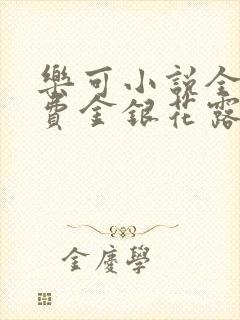 樂可小說全
費金銀花露
金慶學